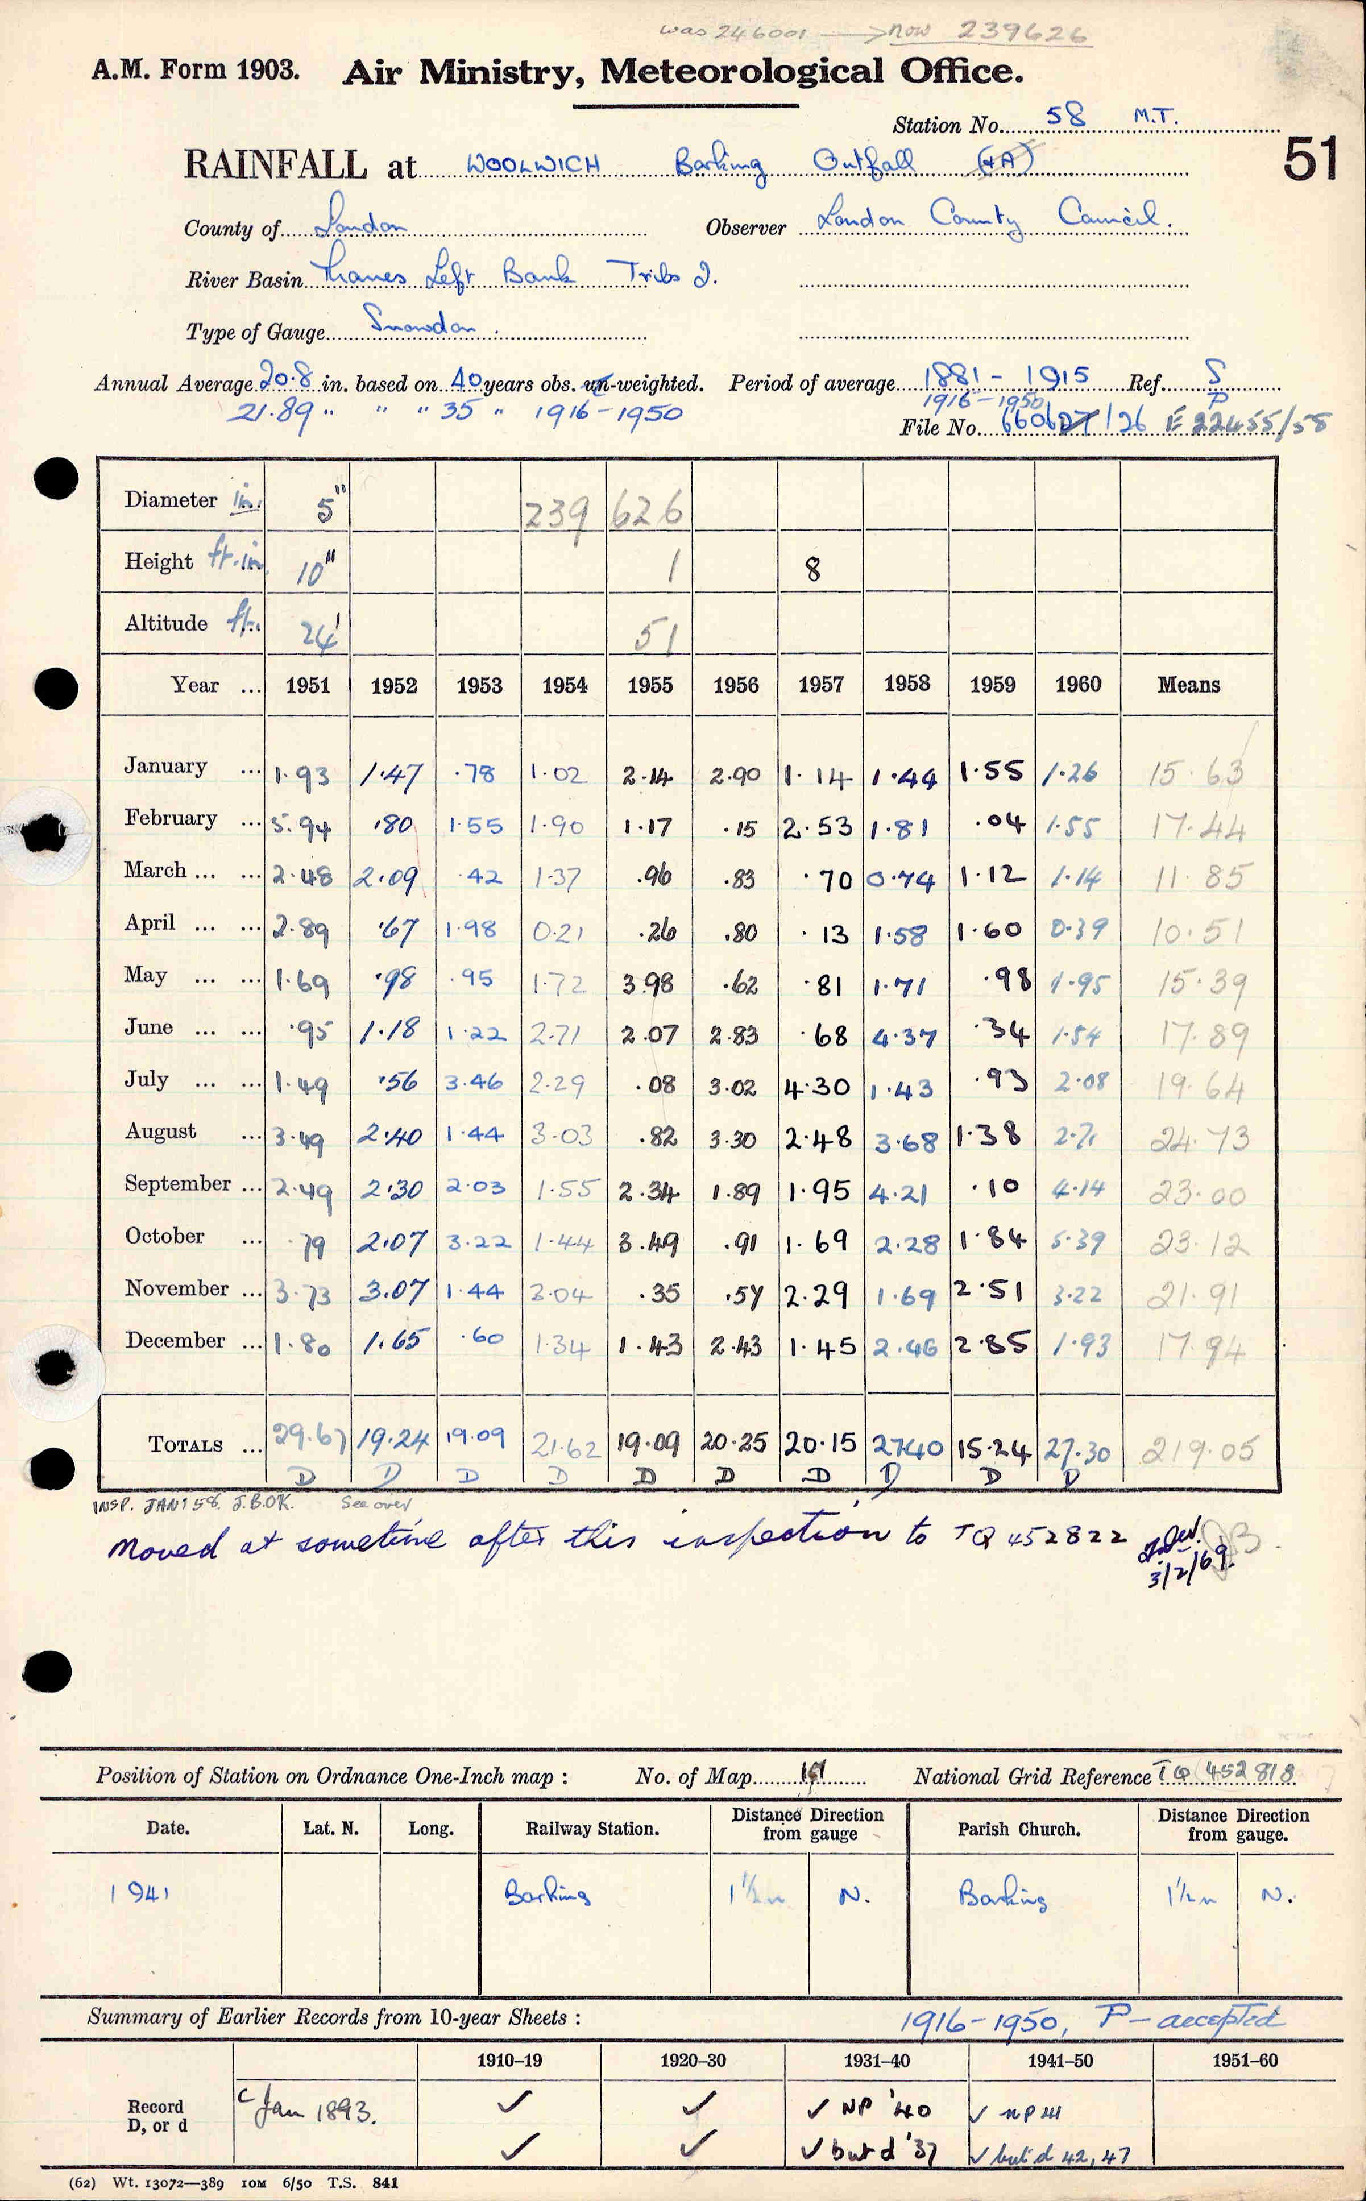 was 246001 → now 239626
A.M. Form 1903. Air Ministry, Meteorological Office.
Station No. 58 M.T.
51
RAINFALL at WOOLWICH Barking Outfall (HA)
County of London Observer London County Council.
River Basin Thames Left Bank Tribs 2.
Type of Gauge Snowdon.
Annual Average 20.8 in. based on 40 years obs. un-weighted. Period of average 1881 - 1915 Ref. S
21.89 " " " 35 " 1916-1950 1916-1950 P
File No. 660627/26 E 22455/58
Diameter in. 5" 239 626
Height ft. in 10" 1 8
Altitude ft. 24' 51
Year ... 1951 1952 1953 1954 1955 1956 1957 1958 1959 1960 Means
January ... 1.93 1.47 .78 1.02 2.14 2.90 1.14 1.44 1.55 1.26 15.63
February ... 5.94 .80 1.55 1.90 1.17 .15 2.53 1.81 .04 1.55 17.44
March ... ... 2.48 2.09 .42 1.37 .96 .83 .70 0.74 1.12 1.14 11.85
April ... ... 2.89 .67 1.98 0.21 .26 .80 .13 1.58 1.60 0.39 10.51
May ... ... 1.69 .98 .95 1.72 3.98 .62 .81 1.71 .98 1.95 15.39
June ... ... .95 1.18 1.22 2.71 2.07 2.83 .68 4.37 .34 1.54 17.89
July ... ... 1.49 .56 3.46 2.29 .08 3.02 4.30 1.43 .93 2.08 19.64
August ... 3.49 2.40 1.44 3.03 .82 3.30 2.48 3.68 1.38 2.71 24.73
September ... 2.49 2.30 2.03 1.55 2.34 1.89 1.95 4.21 .10 4.14 23.00
October ... .79 2.07 3.22 1.44 3.49 .91 1.69 2.28 1.84 5.39 23.12
November ... 3.73 3.07 1.44 3.04 .35 .57 2.29 1.69 2.51 3.22 21.91
December ... 1.80 1.65 .60 1.34 1.43 2.43 1.45 2.46 2.85 1.93 17.94
TOTALS ... 29.67 19.24 19.09 21.62 19.09 20.25 20.15 27.40 15.24 27.30 219.05
D D D D D D D D D D
INSP. JAN! 58. J.B. OK. See over
Moved at sometime after this inspection to TQ 452822
3/2/69.
Position of Station on Ordnance One-Inch map : No. of Map 161 National Grid Reference TQ 452 818
Date. Lat. N. Long. Railway Station. Distance Direction from gauge Parish Church. Distance Direction from gauge.
1941 Barking 1½m N. Barking 1½m N.
Summary of Earlier Records from 10-year Sheets : 1916-1950, P-accepted
1910-19 1920-30 1931-40 1941-50 1951-60
Record D, or d
c Jan 1893. ✓ ✓ ✓ NP '40 ✓ NP 41
✓ ✓ ✓ but d '37 ✓ but d 42, 47
(62) Wt. 13072—389 10M 6/50 T.S. 841